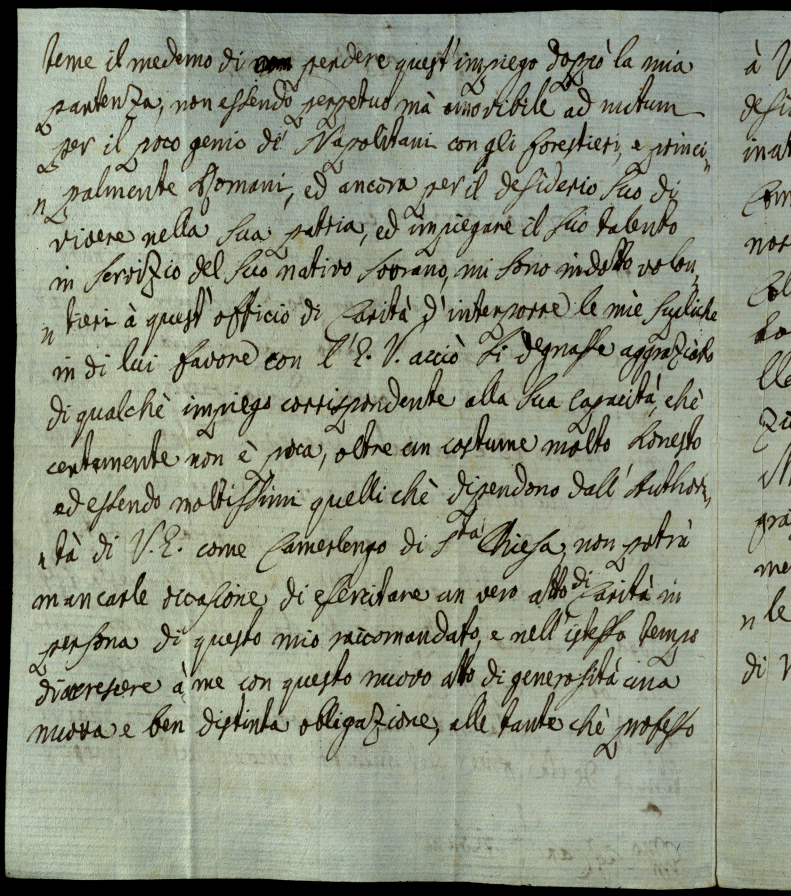 teme il medemo di perdere quest'impiego doppò la mia
partenza, non essendo perpetuo mà amovibile ad nutum
per il poco genio de' Napolitani con gli forestieri, e princi,,
,,palmente Romani, ed ancora per il desiderio suo di
vivere nella sua patria, ed impiegare il suo talento
in servizio del suo nativo sovrano, mi sono indotto volon,,
,,tieri à quest'officio di carità d'interporre le mie suppliche
in di lui favore con l'E. V. acciò si degnasse aggraziarlo
di qualchè impiego corrispondente alla sua capacità, chè
certamente non è poca, oltre un costume molto honesto
ed essendo moltissimi quelli chè dipendono dall'Authori,,
,,tà di V. E. come Camerlengo di Sta Chiesa, non potrà
mancarle occasione di esercitare un vero atto di carità in
persona di questo mio raccomandato, e nell'istesso tempo
di accrescere à me con questo nuovo atto di generosità una
nuova e ben distinta obligazione, alle tante chè professo
à V